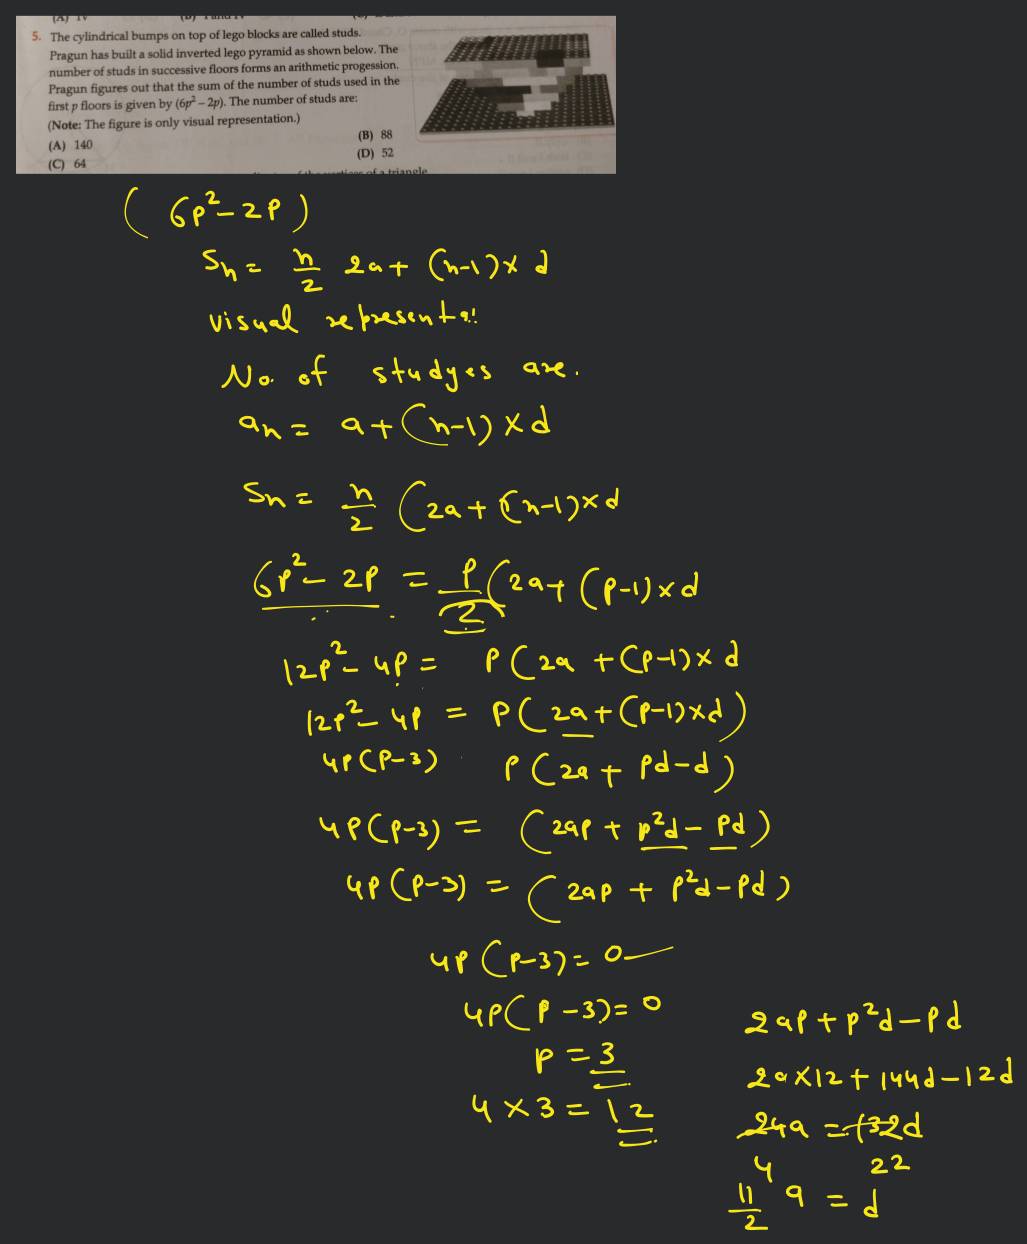 5. The cylindrical bumps on top of lego blocks are called studs.
Pragun has built a solid inverted lego pyramid as shown below. The
number of studs in successive floors forms an arithmetic progession.
Pragun figures out that the sum of the number of studs used in the
first p floors is given by (6p² – 2p). The number of studs are:
(Note: The figure is only visual representation.)
(A) 140
(B) 88
(C) 64
(D) 52
(6p² - 2p)
Sn = n/2 2a + (n-1) × d
visual representa
No. of studyes are.
an = a + (n-1) × d
Sn = n/2 (2a + (n-1) × d
6p² - 2p = p/2 (2a + (p-1) × d
12p² - 4p = p(2a + (p-1) × d
12p² - 4p = p(2a + (p-1) × d)
4p(p-3) p(2a + pd - d)
4p(p-3) = (2ap + p²d - pd)
4p(p-3) = (2ap + p²d - pd)
4p(p-3) = 0
4p(p-3) = 0
p = 3
4 × 3 = 12
2ap + p²d - pd
2a×12 + 144d - 12d
24a = 132d
4 22
11/2 a = d